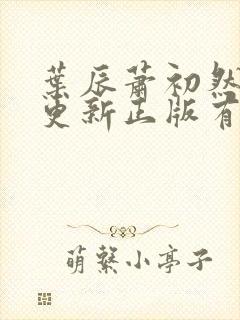 葉辰蕭初然
更新正版有
萌繫小亭子